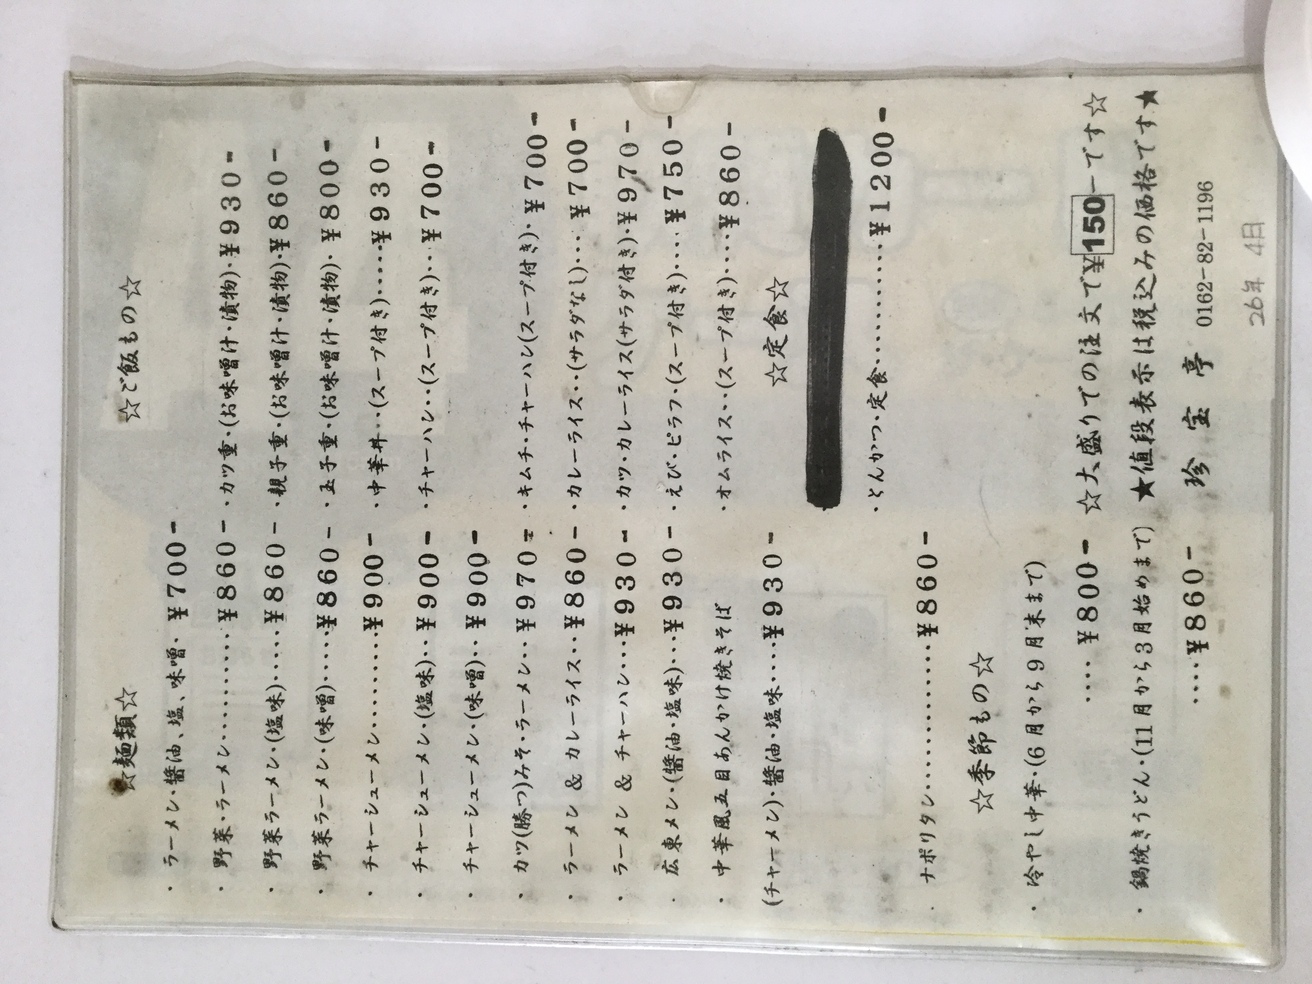 ☆麺類☆
・ラーメン・醬油、塩、味噌・¥700-
・野菜・ラーメン‥‥‥‥‥¥860-
・野菜ラーメン・(塩味)‥‥¥860-
・野菜ラーメン・(味噌)‥‥¥860-
・チャーシューメン‥‥‥‥¥900-
・チャーシューメン・(塩味)‥¥900-
・チャーシューメン・(味噌)‥¥900-
・カツ(勝つ)みそ・ラーメン‥¥970-
・ラーメン & カレーライス‥¥860-
・ラーメン & チャーハン‥‥¥930-
・広東メン・(醬油・塩味)‥¥930-
・中華風五目あんかけ焼きそば
(チャーメン)・醬油・塩味‥‥¥930-
・ナポリタン‥‥‥‥‥‥¥860-
☆季節もの☆
・冷やし中華・(6月から9月末まで)
‥‥¥800-
・鍋焼きうどん・(11月から3月始めまで)
‥‥¥860-
☆ご飯もの☆
・カツ重・(お味噌汁・漬物)・¥930-
・親子重・(お味噌汁・漬物)・¥860-
・玉子重・(お味噌汁・漬物)・¥800-
・中華丼‥(スープ付き)‥‥¥930-
・チャーハン‥(スープ付き)‥¥700-
・キムチ・チャーハン(スープ付き)・¥700-
・カレーライス‥(サラダなし)‥¥700-
・カツ・カレーライス(サラダ付き)・¥970-
・えび・ピラフ・(スープ付き)‥‥¥750-
・オムライス‥(スープ付き)‥‥¥860-
☆定食☆
・とんかつ・定食‥‥‥‥‥¥1200-
☆大盛りでの注文で¥150-です☆
★値段表示は税込みの価格です★
珍宝亭 0162-82-1196
26年 4日